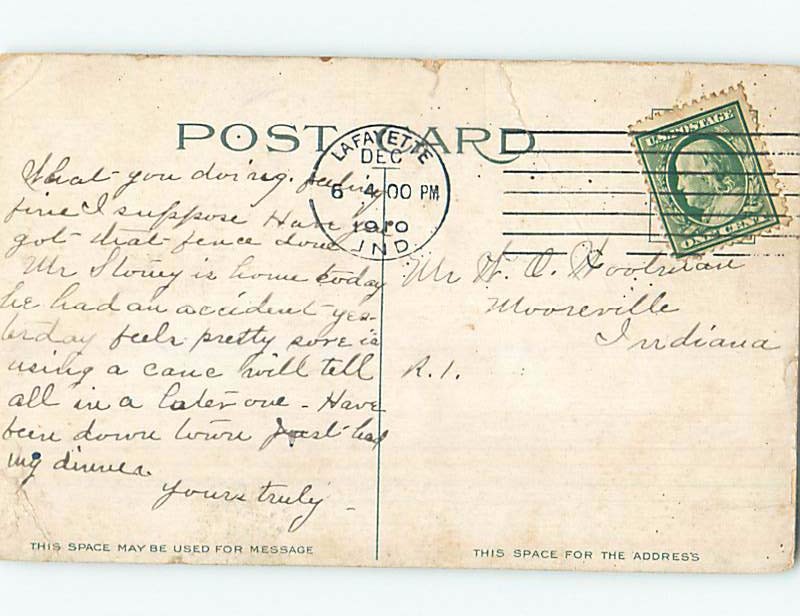 POST CARD
LAFAYETTE
DEC
6 4 00 PM
1910
IND.
U.S. POSTAGE
ONE CENT
What you doing. feeling
fine I suppose Have you
got that fence done
Mr Stoney is home today
he had an accident yes-
terday feels pretty sore is
using a cane will tell
all in a later one - Have
been down town just had
my dinner
yours truly -
Mr H. O. Hoolman
Mooreville
Indiana
R.1.
THIS SPACE MAY BE USED FOR MESSAGE
THIS SPACE FOR THE ADDRESS